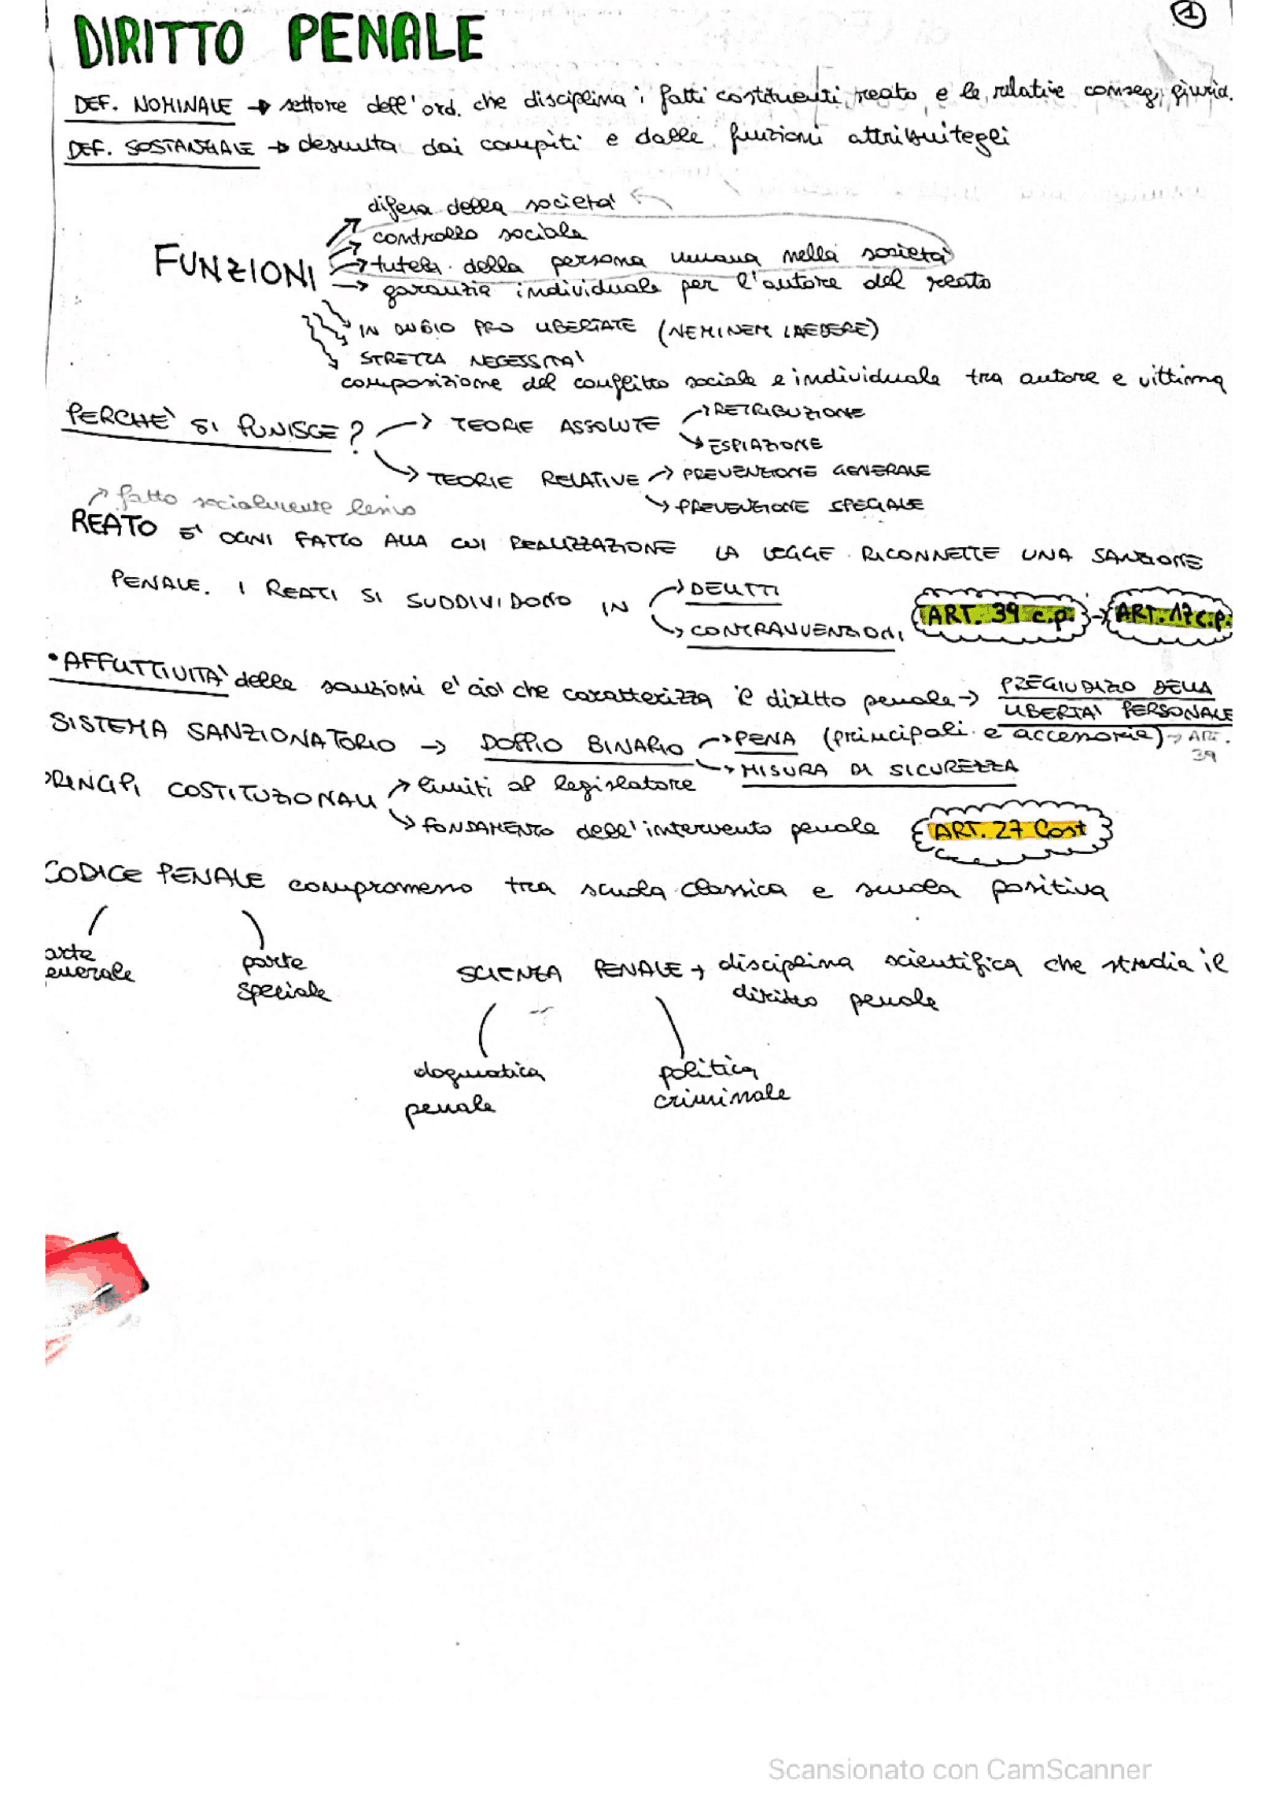 1
DIRITTO PENALE
DEF. NOMINALE → settore dell'ord. che disciplina i fatti costituenti reato e le relative conseg. giurid.
DEF. SOSTANZIALE → desunta dai compiti e dalle funzioni attribuitegli
difesa della società
controllo sociale
FUNZIONI → tutela della persona umana nella società
→ garanzia individuale per l'autore del reato
IN DUBIO PRO LIBERTATE (NEMINEM LAEDERE)
STRETTA NECESSITA'
composizione del conflitto sociale e individuale tra autore e vittima
PERCHE' SI PUNISCE? → TEORIE ASSOLUTE → RETRIBUZIONE
→ ESPIAZIONE
→ TEORIE RELATIVE → PREVENZIONE GENERALE
→ PREVENZIONE SPECIALE
fatto socialmente lesivo
REATO E' OGNI FATTO ALLA CUI REALIZZAZIONE LA LEGGE RICONNETTE UNA SANZIONE
PENALE. I REATI SI SUDDIVIDONO IN → DELITTI
→ CONTRAVVENZIONI
ART. 39 c.p. → ART. 17 c.p.
• AFFLITTIVITA' delle sanzioni e' ciò che caratterizza il diritto penale → PREGIUDIZIO DELLA
LIBERTA' PERSONALE
SISTEMA SANZIONATORIO → DOPPIO BINARIO → PENA (principali e accessorie) → ART.
39
→ MISURA DI SICUREZZA
PRINCIPI COSTITUZIONALI → limiti al legislatore
→ FONDAMENTO dell'intervento penale ART. 27 Cost
CODICE PENALE compromesso tra scuola classica e scuola positiva
arte
enerale
parte
speciale
SCIENZA PENALE → disciplina scientifica che studia il
diritto penale
dogmatica
penale
politica
criminale
Scansionato con CamScanner